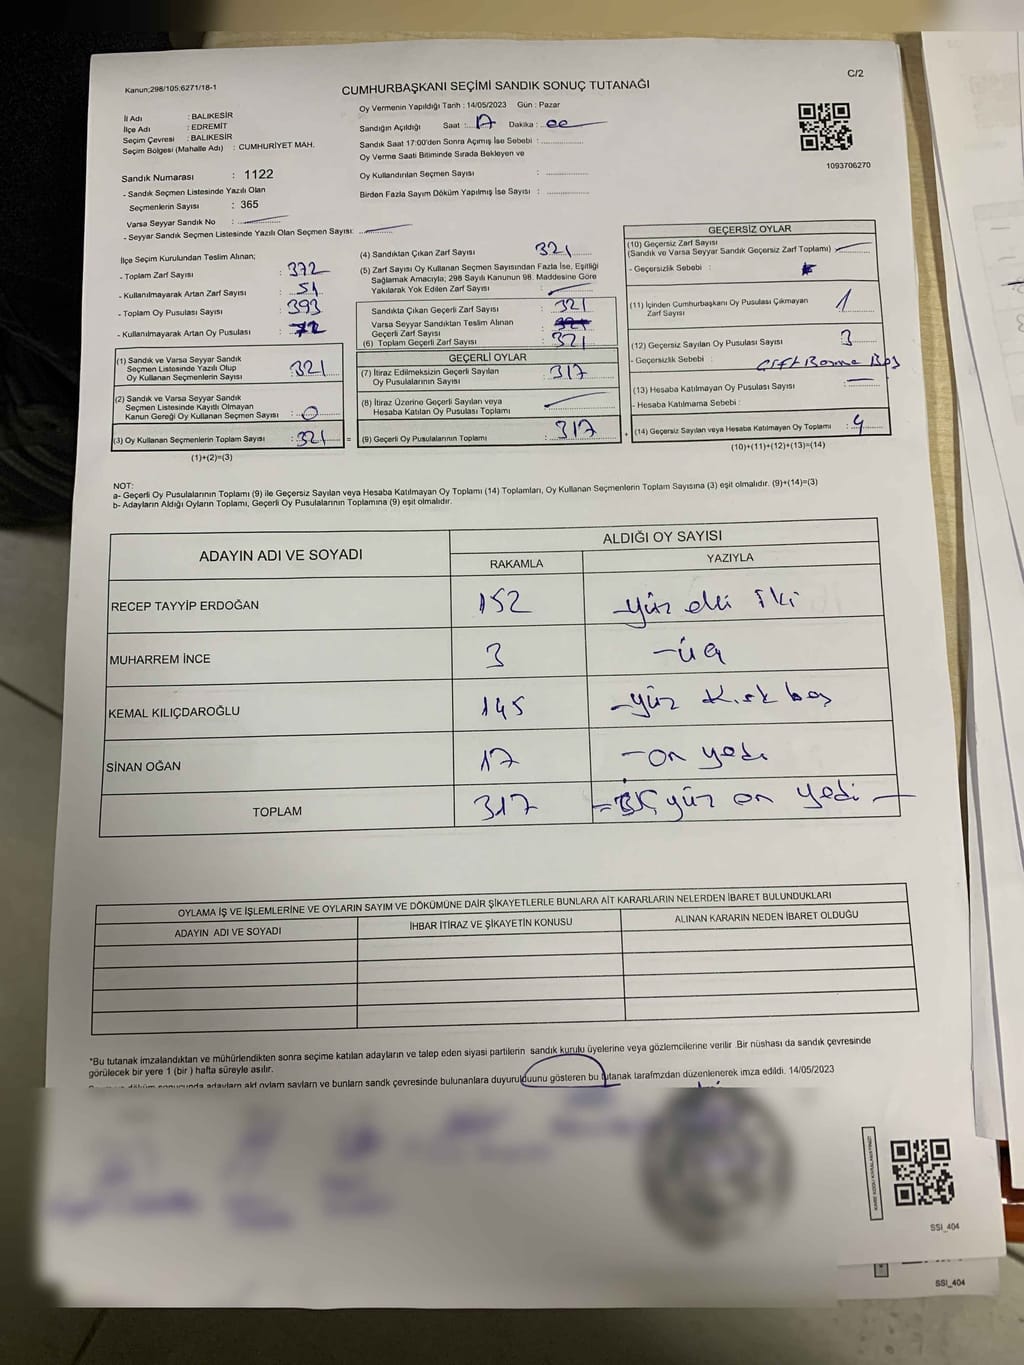 C/2
Kanun;298/105;6271/18-1
CUMHURBAŞKANI SEÇİMİ SANDIK SONUÇ TUTANAĞI
İl Adı : BALIKESİR
İlçe Adı : EDREMİT
Seçim Çevresi : BALIKESİR
Seçim Bölgesi (Mahalle Adı) : CUMHURİYET MAH.
Oy Vermenin Yapıldığı Tarih : 14/05/2023 Gün : Pazar
Sandığın Açıldığı Saat :.. 17 Dakika : ..00
Sandık Saat 17:00'den Sonra Açımış İse Sebebi : ................
Oy Verme Saati Bitiminde Sırada Bekleyen ve
Oy Kullandırılan Seçmen Sayısı : ................
Birden Fazla Sayım Döküm Yapılmış İse Sayısı : ................
1093706270
Sandık Numarası : 1122
- Sandık Seçmen Listesinde Yazılı Olan
Seçmenlerin Sayısı : 365
Varsa Seyyar Sandık No : ................
- Seyyar Sandık Seçmen Listesinde Yazılı Olan Seçmen Sayısı: ................
İlçe Seçim Kurulundan Teslim Alınan;
- Toplam Zarf Sayısı : 372
- Kullanılmayarak Artan Zarf Sayısı : 51
- Toplam Oy Pusulası Sayısı : 393
- Kullanılmayarak Artan Oy Pusulası : 72
(1) Sandık ve Varsa Seyyar Sandık
Seçmen Listesinde Yazılı Olup
Oy Kullanan Seçmenlerin Sayısı : 321
(2) Sandık ve Varsa Seyyar Sandık
Seçmen Listesinde Kayıtlı Olmayan
Kanun Gereği Oy Kullanan Seçmen Sayısı : 0
(3) Oy Kullanan Seçmenlerin Toplam Sayısı : 321 =
(1)+(2)=(3)
(4) Sandıktan Çıkan Zarf Sayısı 321
(5) Zarf Sayısı Oy Kullanan Seçmen Sayısından Fazla İse, Eşitliği
Sağlamak Amacıyla; 298 Sayılı Kanunun 98. Maddesine Göre
Yakılarak Yok Edilen Zarf Sayısı :
Sandıkta Çıkan Geçerli Zarf Sayısı : 321
Varsa Seyyar Sandıktan Teslim Alınan
Geçerli Zarf Sayısı : 321
(6) Toplam Geçerli Zarf Sayısı : 321
GEÇERLİ OYLAR
(7) İtiraz Edilmeksizin Geçerli Sayılan
Oy Pusulalarının Sayısı : 317
(8) İtiraz Üzerine Geçerli Sayılan veya
Hesaba Katılan Oy Pusulası Toplamı :
(9) Geçerli Oy Pusulalarının Toplamı : 317 +
GEÇERSİZ OYLAR
(10) Geçersiz Zarf Sayısı
(Sandık ve Varsa Seyyar Sandık Geçersiz Zarf Toplamı)
- Geçersizlik Sebebi :
(11) İçinden Cumhurbaşkanı Oy Pusulası Çıkmayan
Zarf Sayısı : 1
(12) Geçersiz Sayılan Oy Pusulası Sayısı : 3
- Geçersizlik Sebebi :
(13) Hesaba Katılmayan Oy Pusulası Sayısı :
- Hesaba Katılmama Sebebi :
(14) Geçersiz Sayılan veya Hesaba Katılmayan Oy Toplamı : 4
(10)+(11)+(12)+(13)=(14)
NOT:
a- Geçerli Oy Pusulalarının Toplamı (9) ile Geçersiz Sayılan veya Hesaba Katılmayan Oy Toplamı (14) Toplamları, Oy Kullanan Seçmenlerin Toplam Sayısına (3) eşit olmalıdır. (9)+(14)=(3)
b- Adayların Aldığı Oyların Toplamı, Geçerli Oy Pusulalarının Toplamına (9) eşit olmalıdır.
ADAYIN ADI VE SOYADI ALDIĞI OY SAYISI
RAKAMLA YAZIYLA
RECEP TAYYİP ERDOĞAN 152 -yüz elli iki
MUHARREM İNCE 3 -üç
KEMAL KILIÇDAROĞLU 145 -yüz kırk beş
SİNAN OĞAN 17 -on yedi
TOPLAM 317 =üç yüz on yedi -
OYLAMA İŞ VE İŞLEMLERİNE VE OYLARIN SAYIM VE DÖKÜMÜNE DAİR ŞİKAYETLERLE BUNLARA AİT KARARLARIN NELERDEN İBARET BULUNDUKLARI
ADAYIN ADI VE SOYADI İHBAR İTİRAZ VE ŞİKAYETİN KONUSU ALINAN KARARIN NEDEN İBARET OLDUĞU
*Bu tutanak imzalandıktan ve mühürlendikten sonra seçime katılan adayların ve talep eden siyasi partilerin sandık kurulu üyelerine veya gözlemcilerine verilir .Bir nüshası da sandık çevresinde
görülecek bir yere 1 (bir ) hafta süreyle asılır.
adayların ald oyların sayların ve bunların sandk çevresinde bulunanlara duyurulduunu gösteren bu tutanak tarafmzdan düzenlenerek imza edildi. 14/05/2023
SSI_404
SSI_404